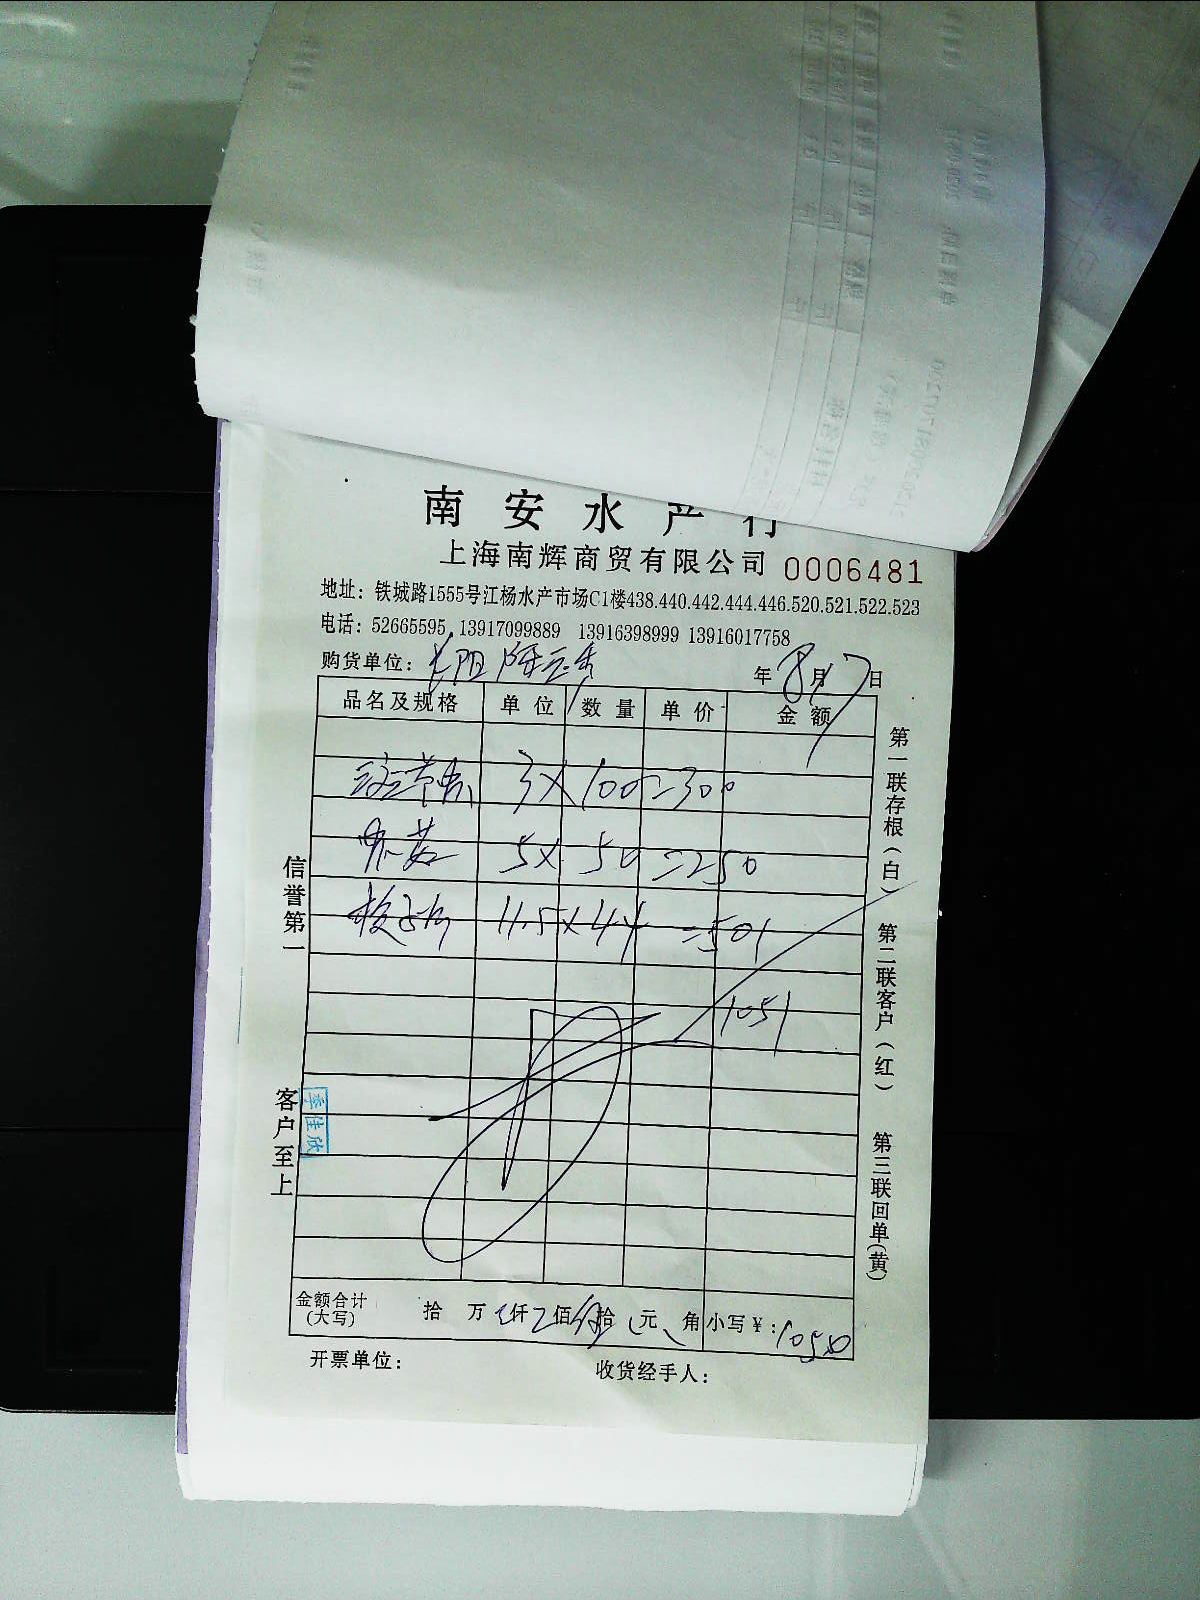 南安水产行
上海南辉商贸有限公司 0006481
地址：铁城路1555号江杨水产市场C1楼438.440.442.444.446.520.521.522.523
电话：52665595 13917099889 13916398999 13916017758
购货单位： 年8月17日
品名及规格 单位 数量 单价 金额
3×100=300
5×50=250
11.5×44=501
1051
金额合计(大写) 拾万仟佰拾元角 小写￥：1050
开票单位： 收货经手人：
信誉第一
客户至上
李佳欣
第一联存根（白）
第二联客户（红）
第三联回单(黄)